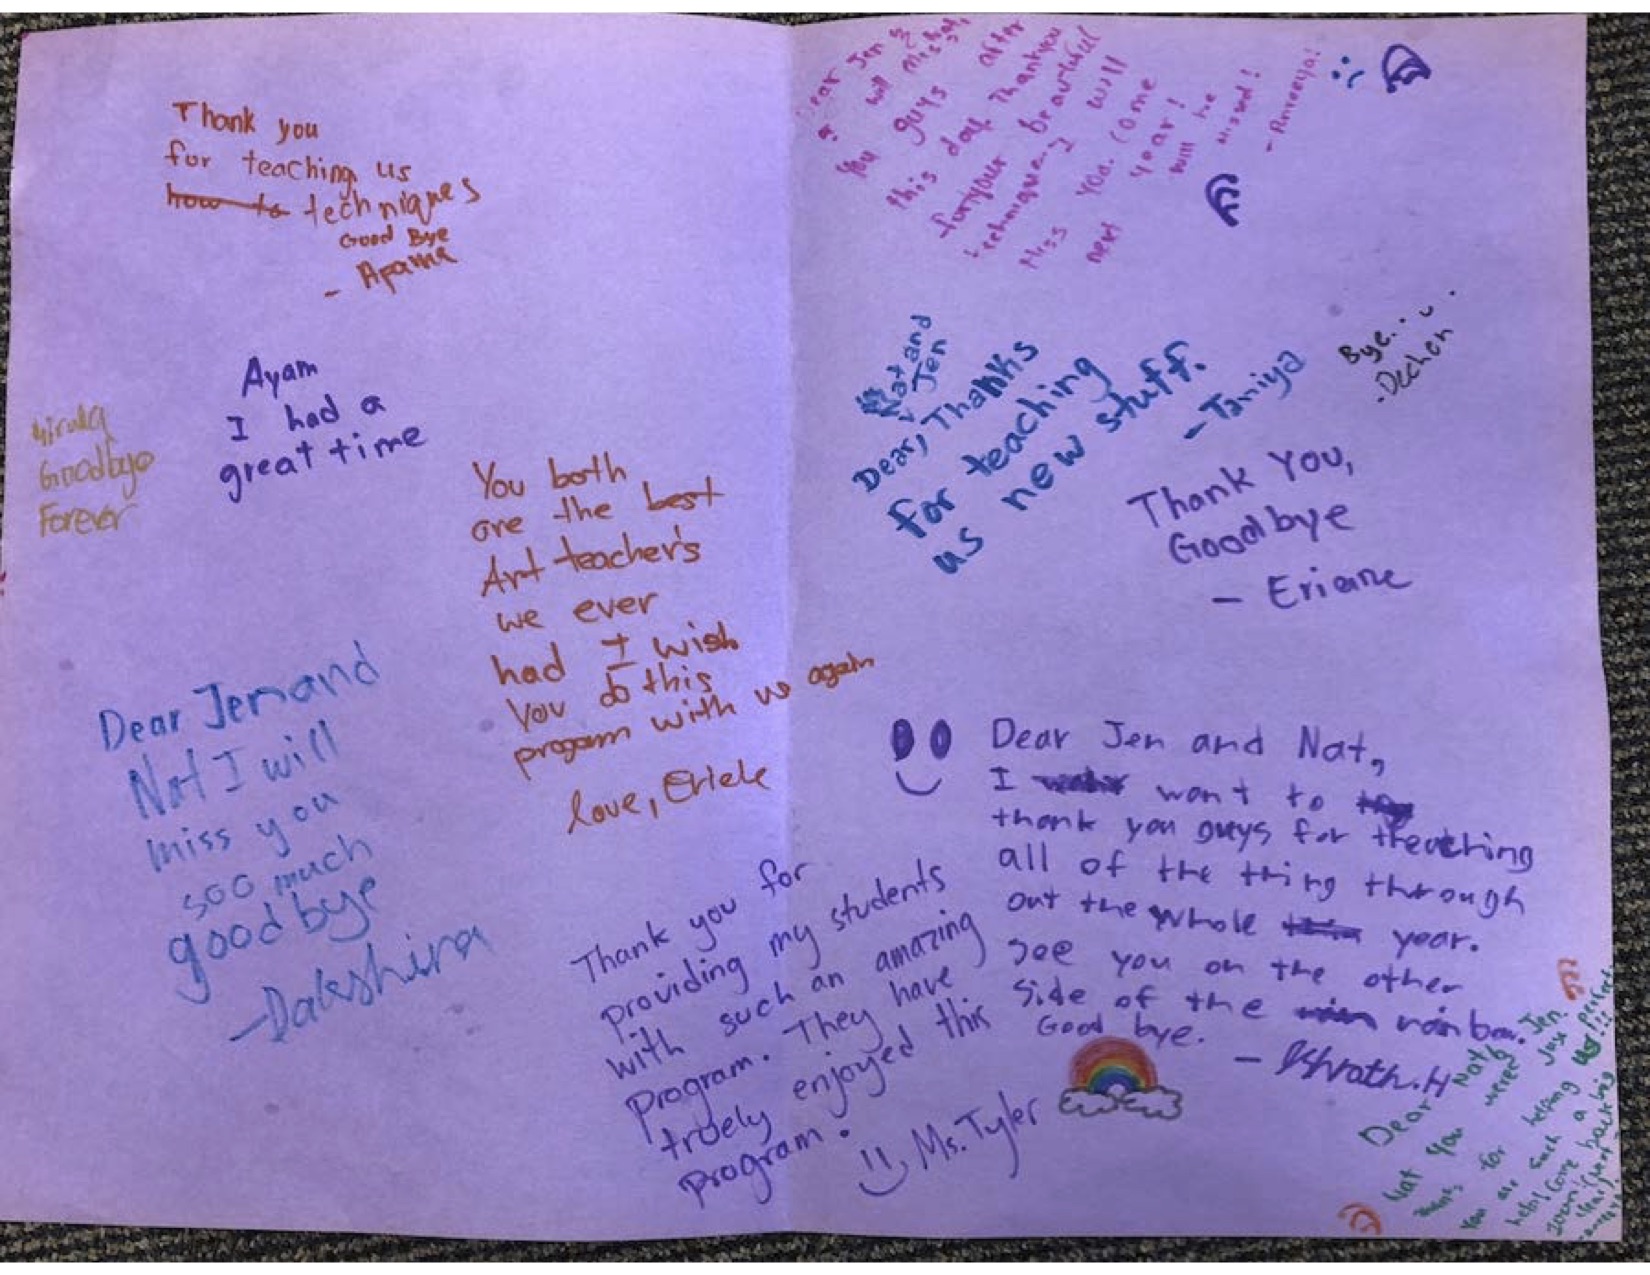 Thank you
for teaching us
how to techniques
Good Bye
- Aparna
Ayam
I had a
great time
Goodbye
Forever
You both
are the best
Art teacher's
we ever
had I wish
you do this
progam with us again
love, Eriele
Dear Jen and
Nat I will
miss you
soo much
good bye
-Dakshina
Thank you for
providing my students
with such an amazing
program. They have
truely enjoyed this
program.
Ms. Tyler
Dear Jen &
will miss
you guys after
this day. Thankyou
for your beautiful
technique. I will
Miss you. Come
next year!
will be
missed!
Nat and
Jen
Dear, Thanks
for teaching
us new stuff.
-Taniya
Bye...
-Dechen
Thank You,
Goodbye
- Eriane
Dear Jen and Nat,
I want to
thank you guys for
all of the thing through
out the whole year.
See you on the other
side of the rainbow.
Good bye.
- Ishrath.H
Dear Nat & Jen.
Nat you were just perfect
thanks for helping us!!!
You are such a big
help! Come back
soon!